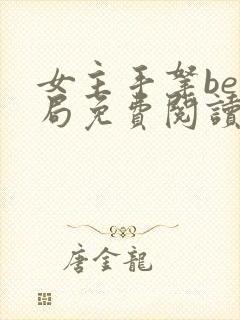 女主手拏be
局免費閱讀
唐金龍